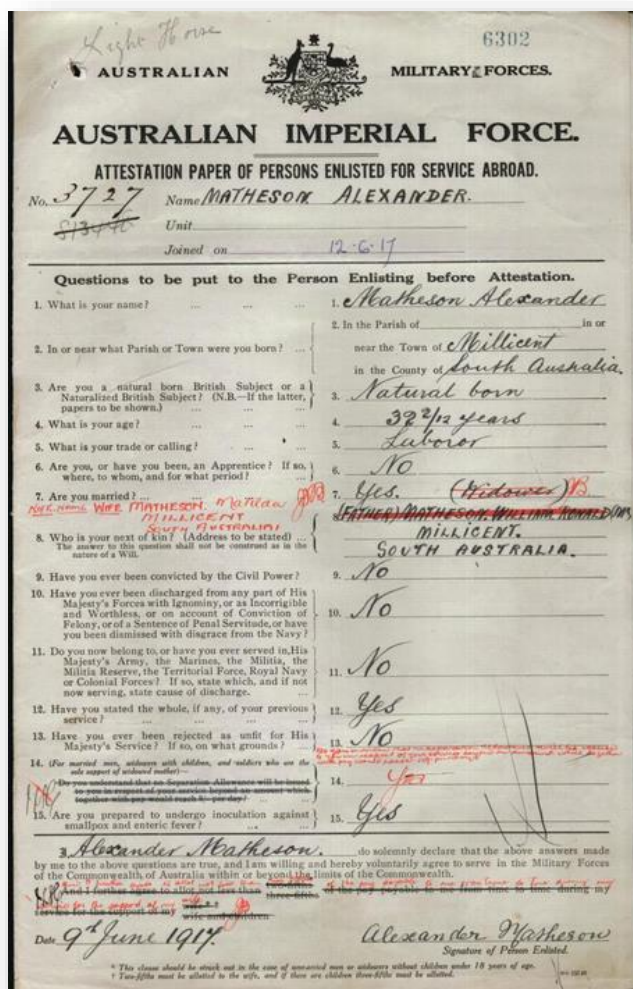 Light Horse
6302
AUSTRALIAN MILITARY FORCES.
AUSTRALIAN IMPERIAL FORCE.
ATTESTATION PAPER OF PERSONS ENLISTED FOR SERVICE ABROAD.
No. 3727 Name MATHESON ALEXANDER.
Unit
Joined on 12-6-17
Questions to be put to the Person Enlisting before Attestation.
1. What is your name? ... ... ... 1. Matheson Alexander
2. In the Parish of in or
2. In or near what Parish or Town were you born? ... near the Town of Millicent
in the County of South Australia.
3. Are you a natural born British Subject or a
Naturalized British Subject? (N.B.—If the latter, 3. Natural born
papers to be shown.) ... ...
4. What is your age? ... ... ... 4. 32 2/12 years
5. What is your trade or calling? ... ... 5. Laboror
6. Are you, or have you been, an Apprentice? If so, 6. No
where, to whom, and for what period? ...
7. Are you married? ... ... 7. Yes. (Widower)
WIFE MATHESON. Matilda
MILLICENT
SOUTH AUSTRALIA
8. (FATHER) MATHESON. WILLIAM RONALD
8. Who is your next of kin? (Address to be stated) ... MILLICENT.
The answer to this question shall not be construed as in the SOUTH AUSTRALIA.
nature of a Will.
9. Have you ever been convicted by the Civil Power? 9. No
10. Have you ever been discharged from any part of His
Majesty's Forces with Ignominy, or as Incorrigible
and Worthless, or on account of Conviction of 10. No
Felony, or of a Sentence of Penal Servitude, or have
you been dismissed with disgrace from the Navy?
11. Do you now belong to, or have you ever served in, His
Majesty's Army, the Marines, the Militia, the
Militia Reserve, the Territorial Force, Royal Navy 11. No
or Colonial Forces? If so, state which, and if not
now serving, state cause of discharge. ...
12. Have you stated the whole, if any, of your previous 12. Yes
service? ... ... ...
13. Have you ever been rejected as unfit for His 13. No
Majesty's Service? If so, on what grounds?
14. (For married men, widowers with children, and soldiers who are the
sole support of widowed mother)—
Do you understand that no Separation Allowance will be issued 14. Yes
to you in respect of your service beyond an amount which
together with pay would reach per day?
15. Are you prepared to undergo inoculation against 15. Yes
smallpox and enteric fever? ... ...
I, Alexander Matheson. do solemnly declare that the above answers made
by me to the above questions are true, and I am willing and hereby voluntarily agree to serve in the Military Forces
of the Commonwealth of Australia within or beyond the limits of the Commonwealth.
And I further agree to allot not less than two-fifths
three-fifths of the pay payable to me from time to time during my
service for the support of my wife
wife and children
Date 9th June 1917. Alexander Matheson
Signature of Person Enlisted.
* This clause should be struck out in the case of unmarried men or widowers without children under 18 years of age.
† Two-fifths must be allotted to the wife, and if there are children three-fifths must be allotted.